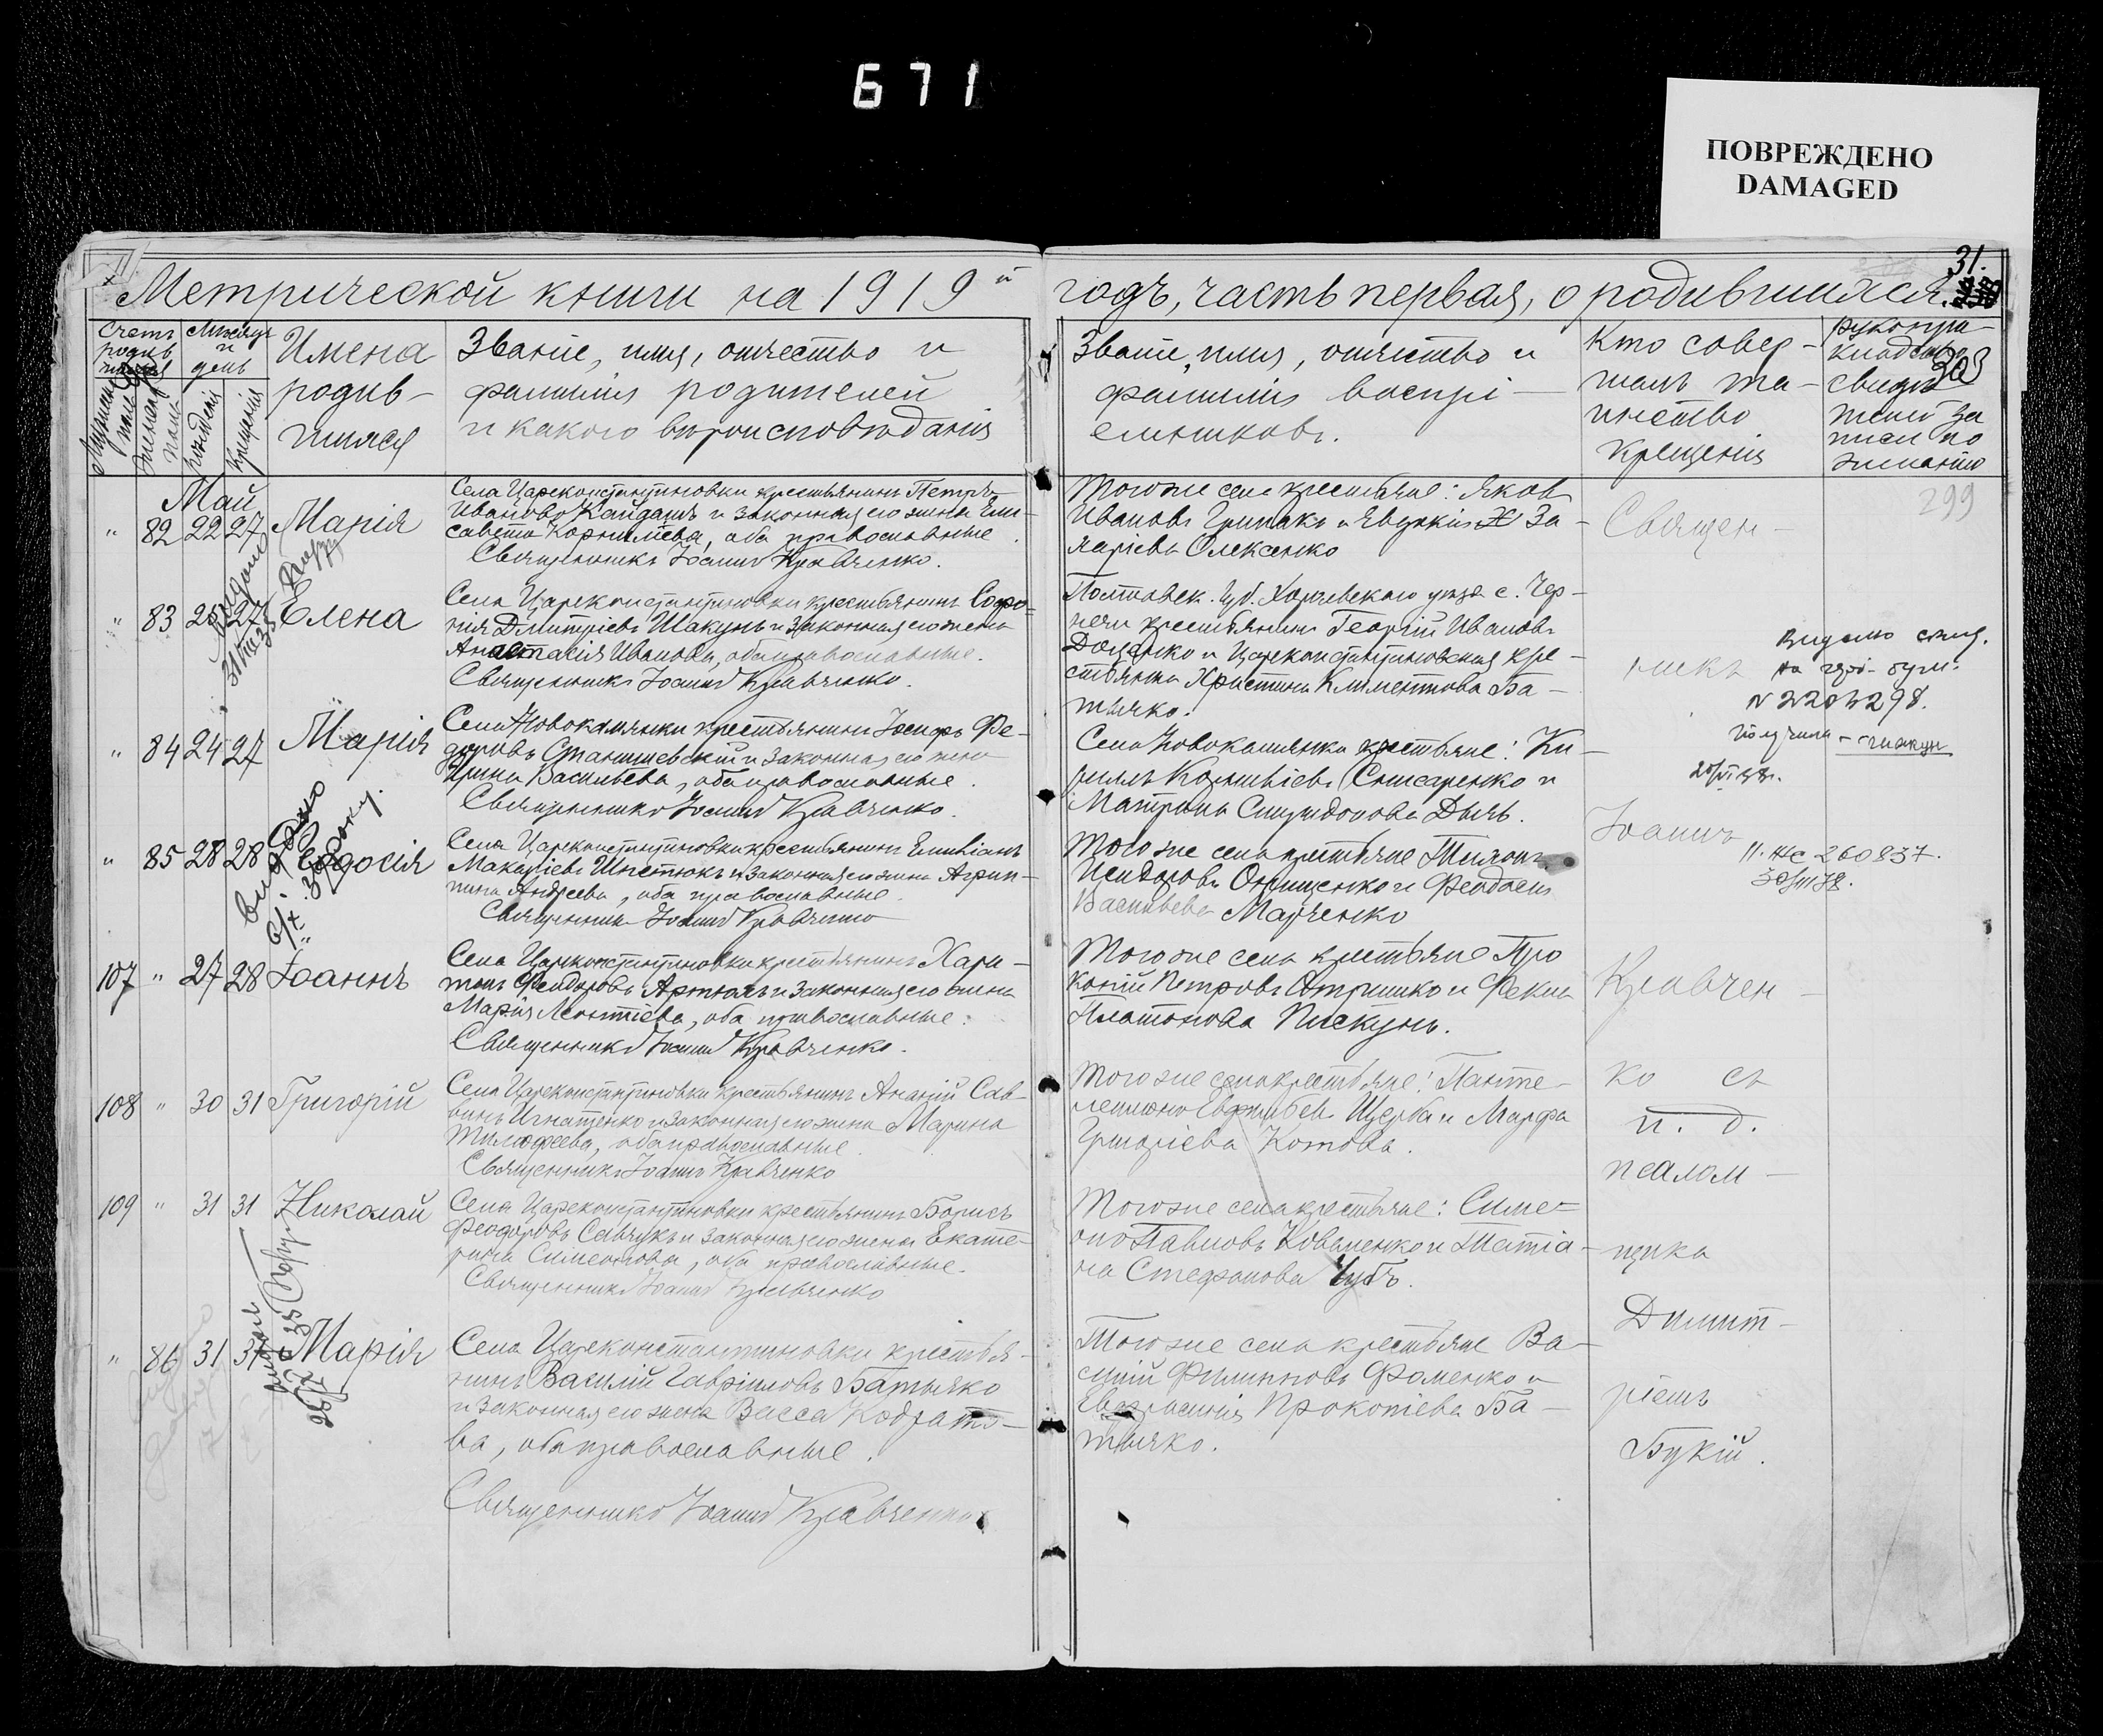 671
ПОВРЕЖДЕНО
DAMAGED
31.
Метрической книги на 1919й
годъ, часть первая, о родившихся.
Счетъ
родив
шихся
Мужеска
пола
Женска
пола
Месяцъ
и
день
рожденія
крещенія
Имена
родив-
шихся
Званіе, имя, отчество и
фамилія родителей
и какого вѣроисповѣданія
Званіе, имя, отчество и
фамилія воспрі-
емниковъ.
Кто совер-
шалъ та-
инство
крещенія
Рукопри-
кладство
свидѣ
телей за
писи по
желанію
303
299
Май
" 82 22 27 Марія
Села Цареконстантиновки крестьянинъ Петръ
Ивановъ Кайдашъ и законная его жена Ели-
савета Корнилiева, оба православные.
Священникъ Іоаннъ Кравченко.
Того же села крестьяне: Яковъ
Ивановъ Грипакъ и Евдокія За-
харіева Олексенко
" 83 25 27 Елена
Села Цареконстантиновки крестьянинъ Софро-
ній Димитріевъ Шакунъ и законная его жена
Анастасія Иванова, оба православные.
Священникъ Іоаннъ Кравченко.
Полтавск. губ. Хорольскаго уезда с. Чер-
нечи крестьянинъ Георгій Ивановъ
Доценко и Цареконстантиновская кре-
стьянка Христина Климентова Ба-
тычко.
" 84 24 27 Марія
Села Новокамянки крестьянинъ Іосифъ Фе-
доровъ Станишевскій и законная его жена
Ирина Васильева, оба православные.
Священникъ Іоаннъ Кравченко.
Села Новокамянки крестьяне: Ки-
риллъ Корниліевъ Снисаренко и
Матрона Спиридонова Дычь.
" 85 28 28 Ѳеодосія
Села Цареконстантиновки крестьянинъ Емиліанъ
Макаріевъ Шистюкъ и законная его жена Агрип-
пина Андреева, оба православные.
Священникъ Іоаннъ Кравченко
Того же села крестьяне Тихонъ
Исидоровъ Онищенко и Феодосія
Васильева Марченко
107 " 27 28 Іоаннъ
Села Цареконстантиновки крестьянинъ Хари-
тонъ Феодоровъ Артюхъ и законная его жена
Марія Леонтіева, оба православные:
Священникъ Іоаннъ Кравченко.
Того же села крестьяне Про
копій Петровъ Отришко и Фекла
Платонова Пискунъ.
108 " 30 31 Григорій
Села Цареконстантиновки крестьянинъ Ананій Сав-
винъ Игнатенко и законная его жена Марина
Тимофеева, оба православные.
Священникъ Іоаннъ Кравченко
Того же села крестьяне: Панте-
леимонъ Евфимiевъ Щерба и Марфа
Григоріева Котова.
109 " 31 31 Николай
Села Цареконстантиновки крестьянинъ Борисъ
Феодоровъ Савчукъ и законная его жена Екате-
рина Симеонова, оба православные.
Священникъ Іоаннъ Кравченко
Того же села крестьяне: Симе-
онъ Павловъ Коваленко и Татіа-
на Стефанова Чубъ.
" 86 31 31 Марія
Села Цареконстантиновки крестья-
нинъ Василій Гавріиловъ Батычко
и законная его жена Васса Кодрато-
ва, оба православные.
Священникъ Іоаннъ Кравченко
Того же села крестьяне Ва-
силій Филипповъ Фоменко и
Евфросинія Прокопіева Ба-
тычко.
Священ-
никъ
Іоаннъ
Кравчен-
ко съ
и. д.
псалом-
щика
Димит-
ріемъ
Букій.
Видано
N 2204298.
11. НС 260837.
30/III 38.